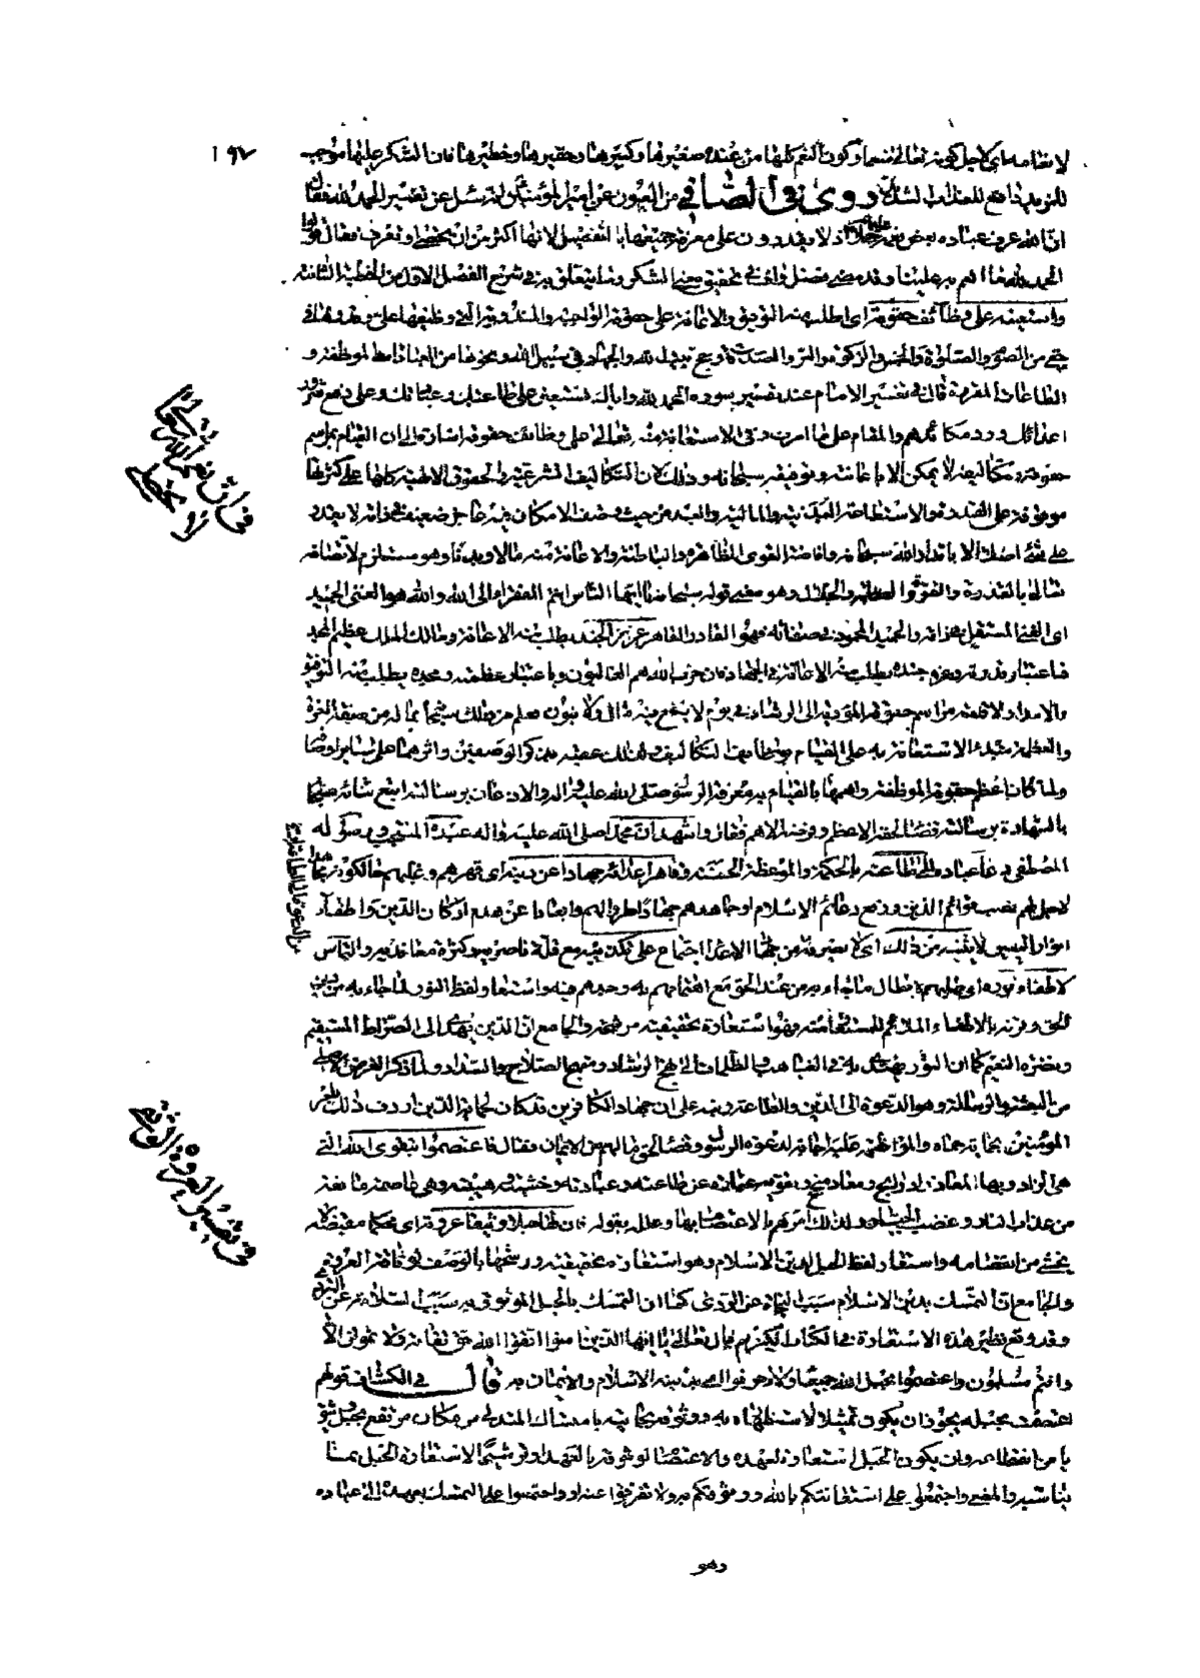 ١٩٧
لانعامه اى لاجل كونه تعالى منعما وكون النعم كلها من عنده صغيرها وكبيرها وحقيرها وخطيرها فان الشكر عليها موجب
للمزيد دافع للعذاب الشديد روى فى الصافي من العيون عن امير المؤمنين انه سئل عن تفسير الحمد لله فقال
ان الله عرف عباده بعض نعمه جملا اذ لا يقدرون على معرفة جميعها بالتفصيل لانها اكثر من ان تحصى او تعرف فقال قولوا
الحمد لله على ما انعم به علينا وقد مضى فصل واف فى تحقيق معنى الشكر وما يتعلق به فى شرح الفصل الاول من الخطبة الثانية
واستعينه على وظائف حقوقه اى اطلب منه التوفيق والاعانة على حقوقه الواجبة والمندوبة التى وظفها على
من الصوم والصلوة والخمس والزكوة والبر والصدقة وحج بيت الله والجهاد فى سبيل الله ونحوها من العبادات الموظفة و
الطاعات المقررة قال فى تفسير الامام عند تفسير سورة الحمد لله واياك نستعين على طاعتك وعبادتك وعلى دفع شرور
اعدائك ورد مكائدهم والمقام على ما امرت وفى الاستعانة منه تعالى على وظائف حقوقه اشارة الى ان القيام بمراسم
حقوقه وتكاليفه لا يمكن الا باعانته وتوفيقه سبحانه وذلك لان التكاليف الشرعية والحقوق الالهية كلها على كثرتها
موقوفة على القدرة والاستطاعة البدنية والمالية والعبد من حيث وصف الامكان فيه عاجز ضعيف فى ذاته لا يقدر
على شئ اصلا الا باقدار الله سبحانه وافاضة القوى الظاهرة والباطنة والاعانة منه حالا وهو مستلزم لاتصافه
تعالى بالقدرة والقوة والجلال وهو معنى قوله سبحانه يا ايها الناس انتم الفقراء الى الله والله هو الغنى الحميد
اى الغنى المستقل بذاته والحميد المحمود فى صفاته فهو القادر القاهر عزيز الجند يطلب منه الاعانة ومالك الملك عظيم المجد
فباعتبار قدرته وعزة جنده يطلب منه الاعانة فى الجهاد فان حزب الله هم الغالبون وباعتبار عظمته ومجده يطلب منه التوفيق
والامداد لاقامة مراسم حقوقه المؤدية الى الرشاد فى يوم لا ينفع فيه مال ولا بنون فعلم من ذلك سبحانه بما له من صفة العزة
والعظمة مبدء الاستعانة به على القيام بوظائف التكاليف ولذلك عقبه بذكر الوصفين واثرهما على سائر اوصافه
ولما كان اعظم حقوقه الموظفة واهمها بالقيام به معرفة الرسول صلى الله عليه وآله والاذعان برسالته اتبع ثنائه عليه
بالشهادة برسالته قضاء لحقه الاعظم وفرضه الاهم فقال واشهد ان محمدا صلى الله عليه واله عبده المنتجب ورسوله
المصطفى دعا عباده الى طاعته بالحكمة والموعظة الحسنة وقاهر اعدائه جهادا عن دينه اى قهرهم وغلبهم
لاجل نصب قوائم الدين ورفع دعائم الاسلام او جاهدهم جهادا طردا لهم وابعادا عن هدم اركان الدين واطفاء
انوار اليقين لا يثنيه عن ذلك اى لا يصرفه عن جهاد الاعداء اجتماع على تكذيبه مع قلة ناصريه وكثرة معانديه والتماس
لاطفاء نوره اى طلبهم بابطال ما جاء به من عند الحق مع اهتمامهم به وجدهم فيه واستعار لفظ النور لما جاء به من دين
الحق وقرنه بالاطفاء الملائم للمستعار منه فهو استعارة تحقيقية مرشحة والجامع ان الدين يهدى الى الصراط المستقيم
ونضرة النعيم كما ان النور يهتدى به فى الغياهب والظلمات الى نهج الرشاد ومنهج الصلاح والسداد ولما ذكر الغرض الاصلى
من البعثة والرسالة وهو الدعوة الى الدين والطاعة ونبه على ان جهاد الكافرين قد كان لحماية الدين اردف ذلك بامر
المؤمنين بحمايته والمواظبة عليه اجابة لدعوة الرسول وقضاء لحق ما لهم من الايمان فقال فاعتصموا بتقوى الله التى
هى الزاد وبها المعاد زاد رابح ومعاد منجح وبتقوى
من عذاب النار وغضب الجبار ولذلك امرهم بالاعتصام بها وعلله بقوله فان لها حبلا وثيقا عروته اى محكما مقبضه لا
يخشى من انفصامه واستعار لفظ الحبل لدين الاسلام وهو استعارة تحقيقية ورشحها بالوصف لوثاقة العروة
والجامع ان التمسك بدين الاسلام سبب النجاة عن الردى كما ان التمسك بالحبل الموثوق به سبب السلامة عن التردى
وقد وقع نظير هذه الاستعارة فى الكتاب الكريم قال تعالى يا ايها الذين امنوا اتقوا الله حق تقاته ولا تموتن الا
وانتم مسلمون واعتصموا بحبل الله جميعا ولا تفرقوا اى بدينه الاسلام والايمان به قال فى الكشاف قولهم
اعتصمت بحبله يجوز ان يكون تمثيلا لاستظهاره به ووثوقه بحمايته بامتساك المتدلى من مكان مرتفع بحبل وثيق
يا من انقطاعه وان يكون الحبل استعارة لعهده والاعتصام لوثوقه بالعهد او ترشيحا لاستعارة الحبل بما
يناسبه والمعنى واجتمعوا على استعانتكم بالله ووثوقكم به ولا تفرقوا عنه او واجتمعوا على التمسك بعهده الى عباده
وهو
فى ان نعم الله تعالى
لا تحصى
فى تفسير العروة الوثقى